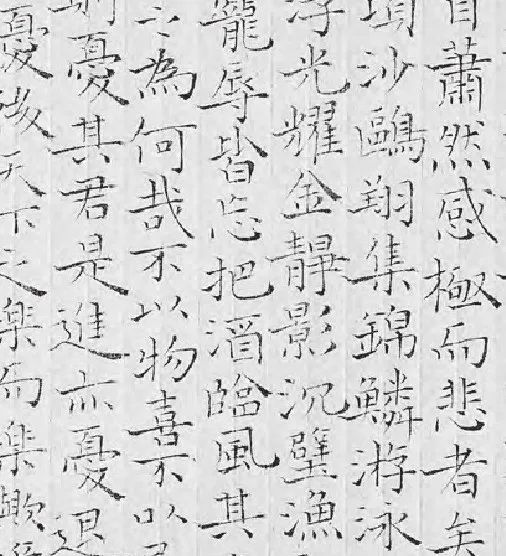 目蕭然感極而悲者矣
頃沙鷗翔集錦鱗游泳
浮光耀金靜影沉璧漁
寵辱皆忘把酒臨風其
之為何哉不以物喜不以
則憂其君是進亦憂退
憂後天下之樂而樂歟